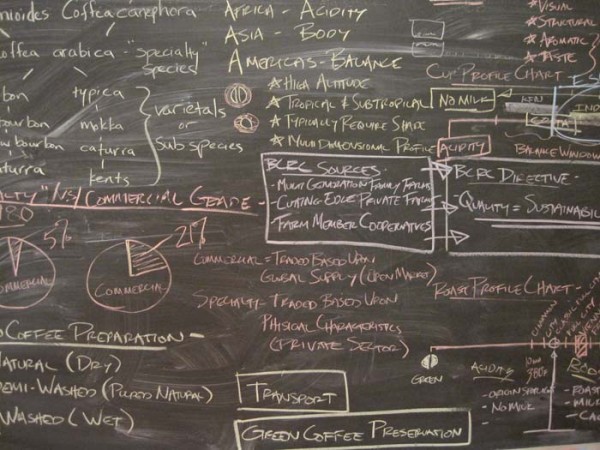 Coffea canephora
arabica - "specialty"
species
typica
mokka
caturra
kents
varietals
or
Subspecies
Africa - Acidity
Asia - Body
Americas - Balance
* High Altitude
* Tropical & Subtropical
* Typically Require Shade
* Multi Dimensional Profile
* Visual
* Structural
* Aromatic
* Taste
Cup Profile Chart
No Milk
Acidity
Balance Window
Commercial Grade -
5%
Commercial
21%
Commercial
BCRC Sources
- Multi Generation Family Farms
- Cutting Edge Private Farms
- Farm Member Cooperatives
BCRC Directive -
Quality = Sustainabil
Commercial - Traded Based Upon
Global Supply (Open Market)
Specialty - Traded Based Upon
Physical Characteristics
(Private Sector)
Roast Profile Chart -
Green
Acidity
- No Milk
Coffee Preparation -
Natural (Dry)
emi-Washed (Pulped Natural)
Washed (Wet)
Transport
Green Coffee Preservation